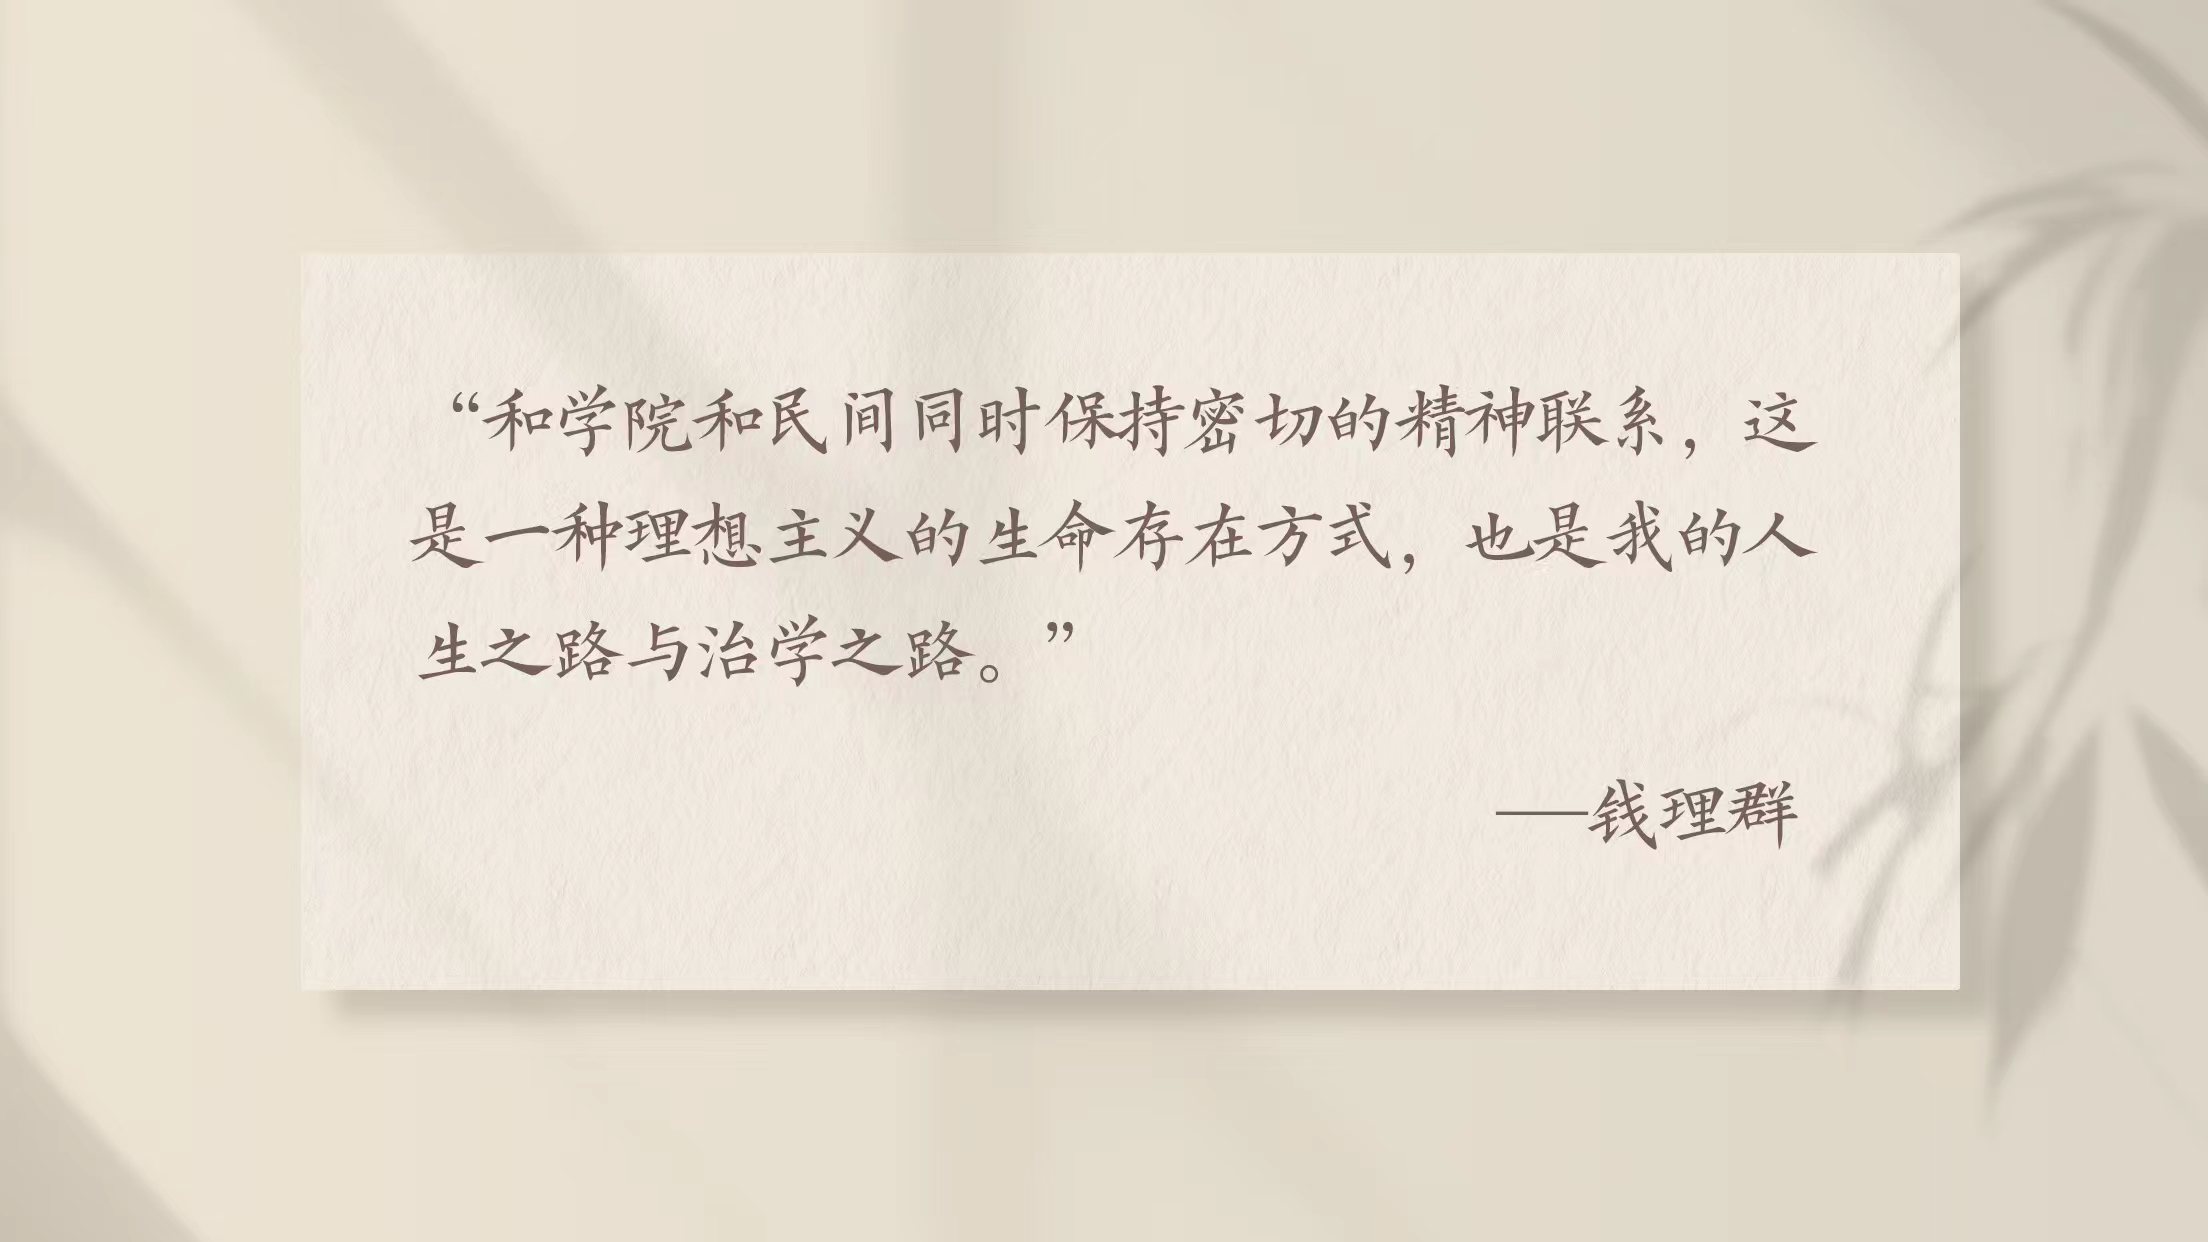 “和学院和民间同时保持密切的精神联系，这
是一种理想主义的生命存在方式，也是我的人
生之路与治学之路。”
——钱理群